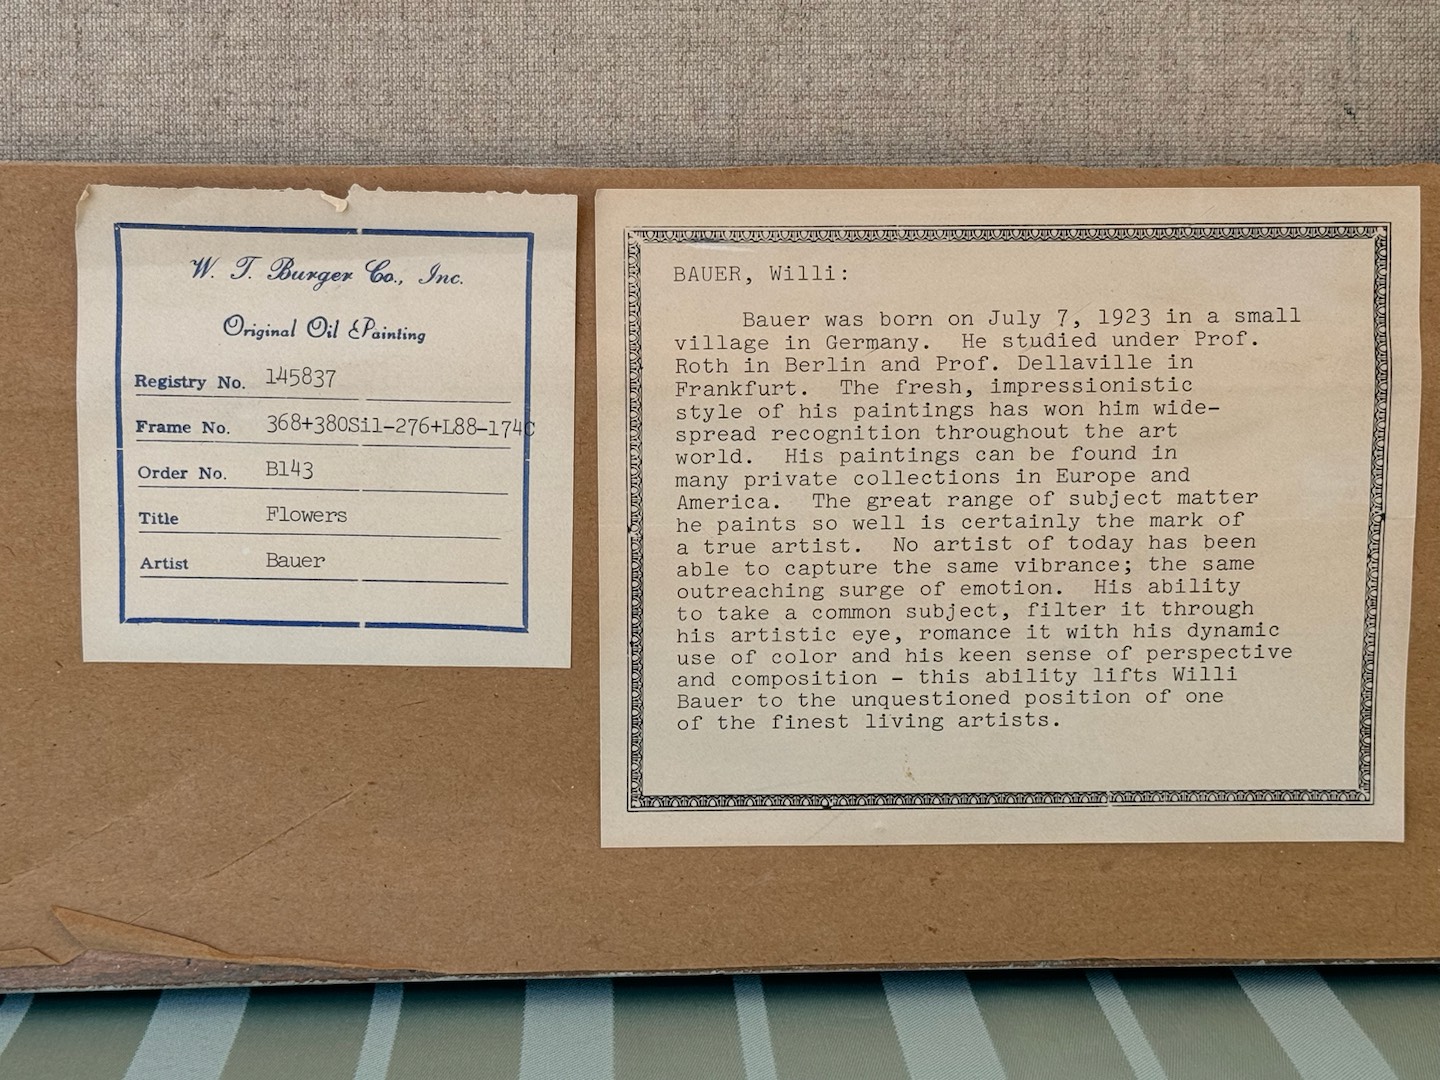 W. T. Burger Co., Inc.
Original Oil Painting
Registry No. 145837
Frame No. 368+380Sil-276+L88-174C
Order No. B143
Title Flowers
Artist Bauer
BAUER, Willi:
Bauer was born on July 7, 1923 in a small
village in Germany. He studied under Prof.
Roth in Berlin and Prof. Dellaville in
Frankfurt. The fresh, impressionistic
style of his paintings has won him wide-
spread recognition throughout the art
world. His paintings can be found in
many private collections in Europe and
America. The great range of subject matter
he paints so well is certainly the mark of
a true artist. No artist of today has been
able to capture the same vibrance; the same
outreaching surge of emotion. His ability
to take a common subject, filter it through
his artistic eye, romance it with his dynamic
use of color and his keen sense of perspective
and composition - this ability lifts Willi
Bauer to the unquestioned position of one
of the finest living artists.